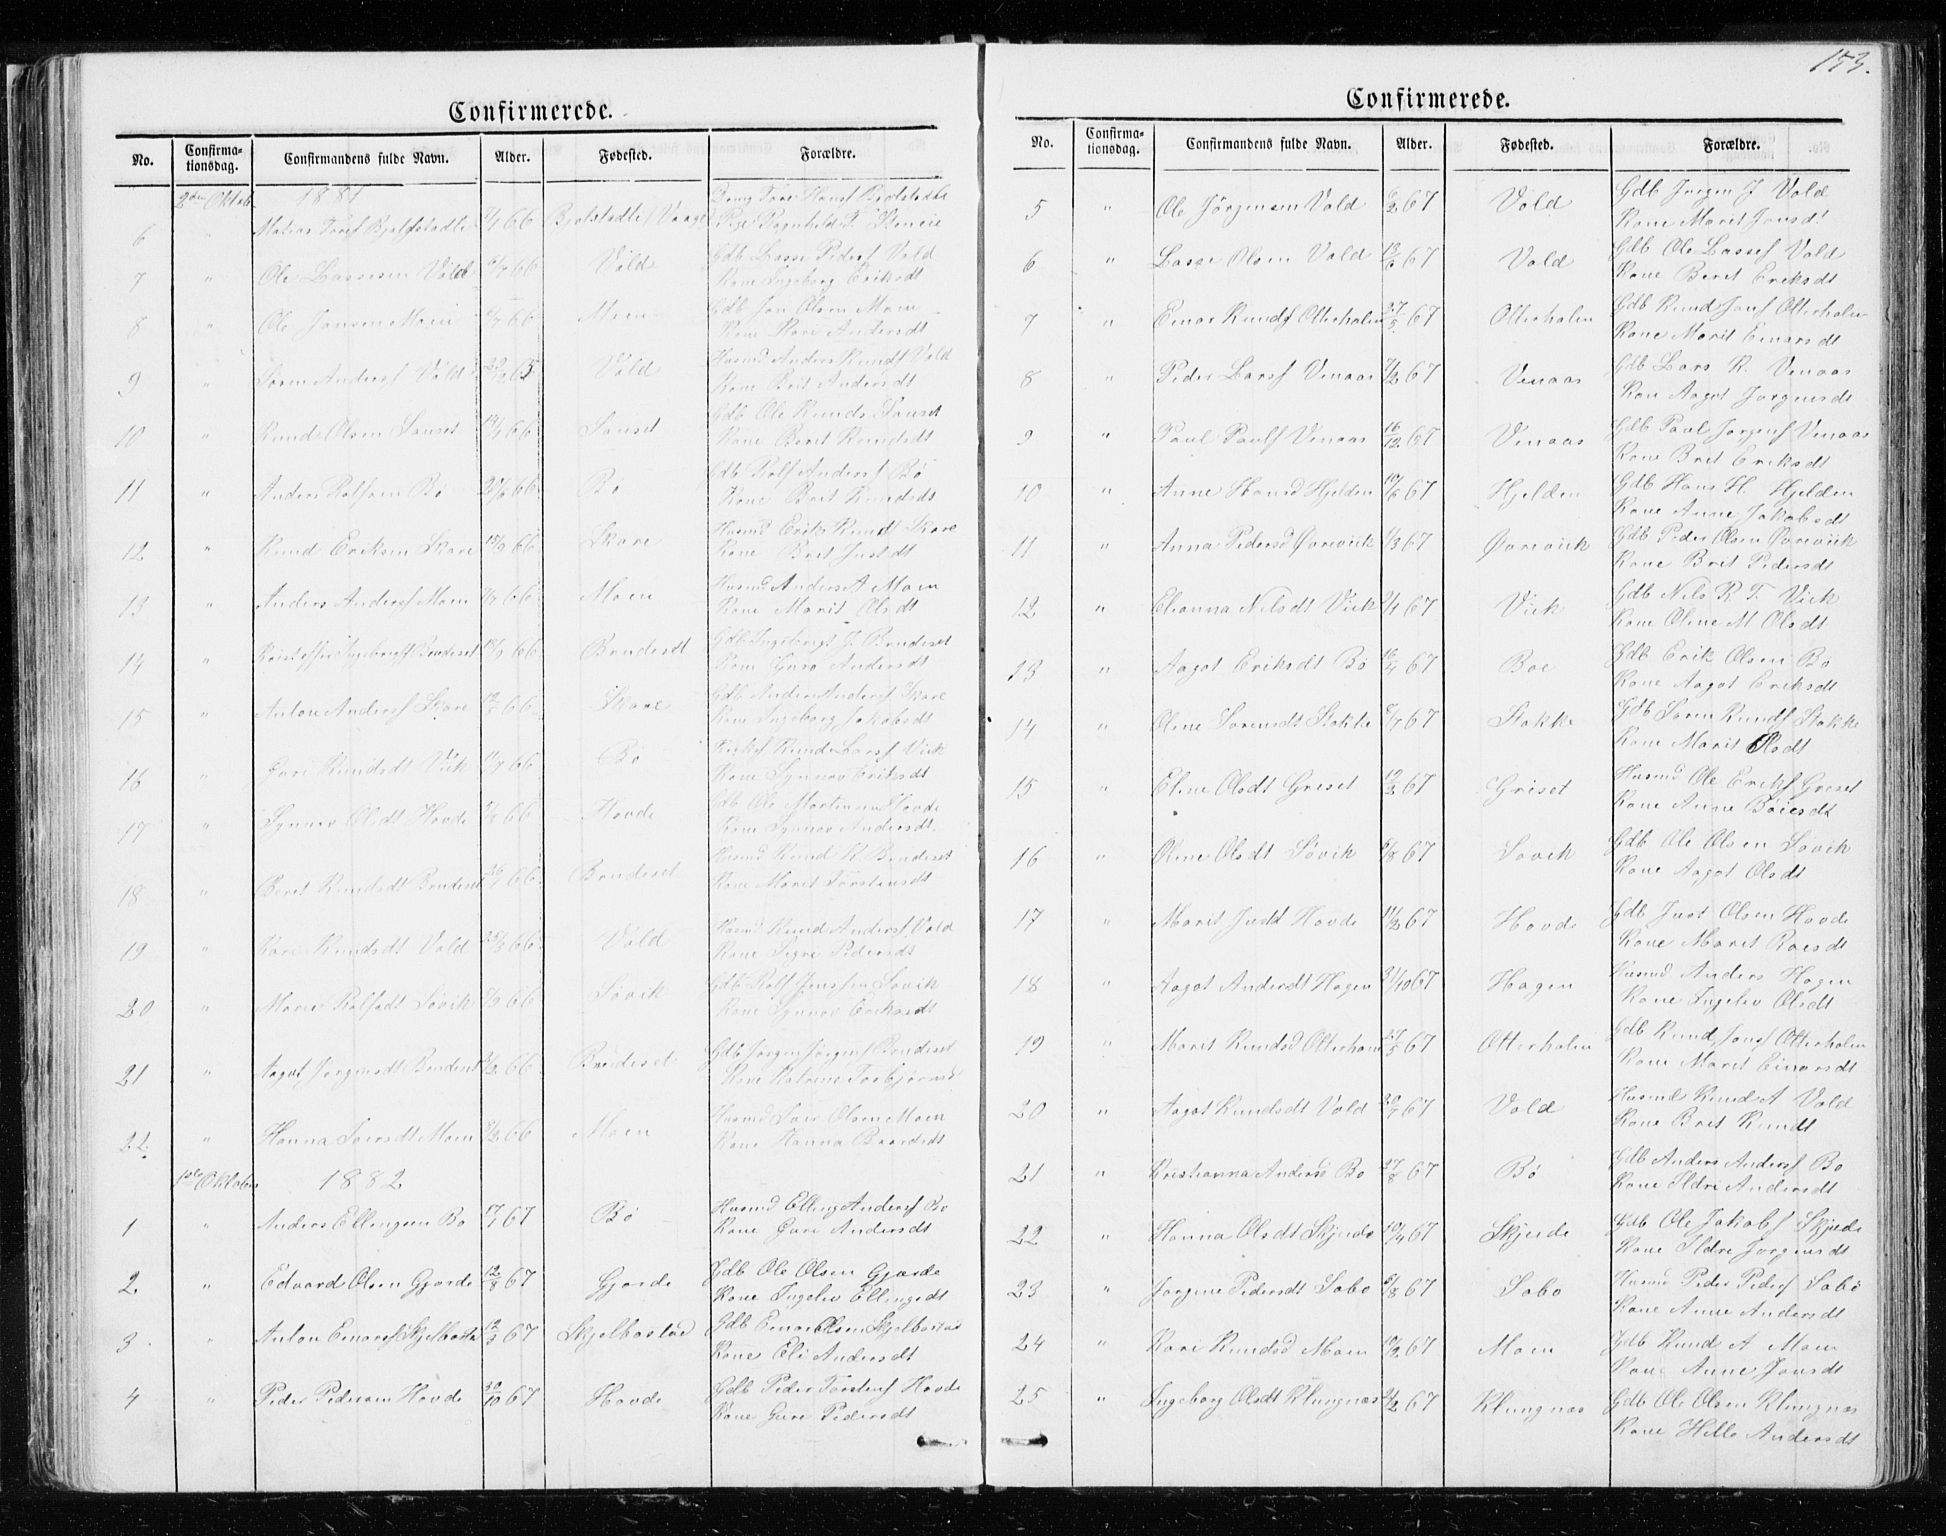 153.
Confirmerede.
No. Confirma-tionsdag. Confirmandens fulde Navn. Alder. Fødested. Forældre.
2den Oktob. 1881
6 " Matias Toresf Bjolstadli 66 Bjolstadli
7 " Ole Lassesen Vold 66 Vold Gdb Lasse Pedersf Vold
Kone Ingeborg Eriksdt
8 " Ole Jonsen Moen 66 Moen Gdb Jon Olsen Moen
Kone Kari Andersdt
9 " Søren Andersf Vold 65 Vold Husmd Anders Knudsf Vold
Kone Brit Andersdt
10 " Knud Olsen Sauset 66 Sauset Gdb Ole Knuds Sauset
Kone Beret Knudsdt
11 " Anders Rolfsen Bø 66 Bø Gdb Rolf Andersf Bø
Kone Brit Knudsdt
12 " Knud Eriksen Skare 66 Skare Husmd Erik Knudsf Skare
Kone Brit Justdt
13 " Anders Andersf Moen 66 Moen Husmd Anders A Moen
Kone Marit Olsdt
14 " Kristoffer Ingebrigtf Brudeset 66 Brudeset Gdb Ingebrigt J. Brudeset
Kone Guro Andersdt
15 " Anton Andersf Skare 66 Skare Gdb Anders Andersf Skare
Kone Ingeborg Jakobsdt
16 " Guri Knudsdt Viik 66 Bø Knud Larsf Viik
Kone Synnøv Eriksdt
17 " Synnøv Olsdt Hovde 66 Hovde Gdb Ole Martinsen Hovde
Kone Synnøv Andersdt.
18 " Beret Knudsdt Brudeset 66 Brudeset Husmd Knud K. Brudeset
Kone Marit Torstensdt
19 " Kari Knudsdt Vold 66 Vold Husmd Knud Andersf Vold
Kone Sigri Pedersdt
20 " Marie Rolfsdt Søvik 66 Søvik Gdb Rolf Søvik
Kone Synnøv Eriksdt
21 " Aagot Jørgensdt Brudeset 66 Brudeset Gdb Jørgen Jørgensf Brudeset
Kone Katrine Torbjørnsd
22. " Hanna Siversdt Moen 66 Moen Husmd Siver Olsen Moen
Kone Hanna Baardsdt
1ste Oktober 1882
1 " Anders Ellingsen Bø 67 Bø Husmd Elling Andersf Bø
Kone Guri Andersdt
2 " Edvard Olsen Gjørde 12/8 67 Gjørde Gdb Ole Olsen Gjørde
Kone Ingelev Ellingsdt
3 " Anton Einarsf Skjelbostad 67 Skjelbostad Gdb Einar Olsen Skjelbostad
Kone Eli Andersdt
4 " Peder Pedersen Hovde 67 Hovde Gdb Peder Torstensf Hovde
Kone Guri Pedersdt
Confirmerede.
No. Confirma-tionsdag. Confirmandens fulde Navn. Alder. Fødested. Forældre.
5 " Ole Jørgensen Vold 67 Vold Gdb Jørgen J Vold
Kone Marit Jonsdt
6 " Lasse Olsen Vold 67 Vold Gdb Ole Lassesf Vold
Kone Beret Eriksdt
7 " Einar Knudsf Otterholm 27/5 67 Otterholm Gdb Knud Jonsf Otterholm
Kone Marit Einarsdt
8 " Peder Larsf Venaas 67 Venaas Gdb Lars R. Venaas
Kon Aagot Jørgensdt
9 " Paul Paulsf Venaas 16/12 67 Venaas Gdb Paul Jørgensf Venaas
Kone Brit Eriksdt
10 " Anne Hansd Hjelden 67 Hjelden Gdb Hans H. Hjelden
Kone Anne Jakobsdt
11 " Anna Pedersd Øvrevik 67 Øvrevik Gdb Peder Olsen Øvrevik
Kone Brit Pedersdt
12 " Elianna Nilsdt Viik 67 Viik Gdb Nils R. T. Viik
Kone Oline M Olsdt
13 " Aagot Eriksdt Bø 16/4 67 Boe Gdb Erik Olsen Bø
Kone Aagot Eriksdt
14 " Oline Sørensdt Stokke 67 Stokke Gdb Søren Knudsf Stokke
Kone Marit Olsdt
15 " Eline Olsdt Griset 67 Griset Husmd Ole Eriksf Griset
Kone Anne Boiesdt
16 " Oline Olsdt Søvik 67 Søvik Gdb Ole Olsen Søvik
Kone Aagot Olsdt
17 " Marit Justd Hovde 67 Hovde Gdb Just Olsen Hovde
Kone Marit Roesdt
18 " Aagot Andersdt Hagen 67 Hagen Husmd Anders Hagen
Kone Ingelev Olsdt
19 " Marit Knudsd Otterholm 27/5 67 Otterholm Gdb Knud Jonsf Otterholm
Kone Marit Einarsdt
20 " Aagot Knudsdt Vold 67 Vold Husmd Knud A Vold
Kone Brit Knudt
21 " Kristianna Andersd Bø 27/8 67 Bø Gdb Anders Andersf Bø
Kone Ildri Andersdt
22 " Hanna Olsdt Skjeide 67 Skjeide Gdb Ole Jakobsf Skjeide
Kone Ildre Jørgensdt
23 " Jørgine Pedersdt Sobø 67 Sobø Husmd Peder Pedersf Sobø
Kone Anne Andersdt
24 " Kari Knudsd Moen 67 Moen Gdb Knud A Moen
Kone Anne Jonsdt
25 " Ingeborg Olsdt Klungnæs 67 Klungnæs Gdb Ole Olsen Klungnæs
Kone Andersdt